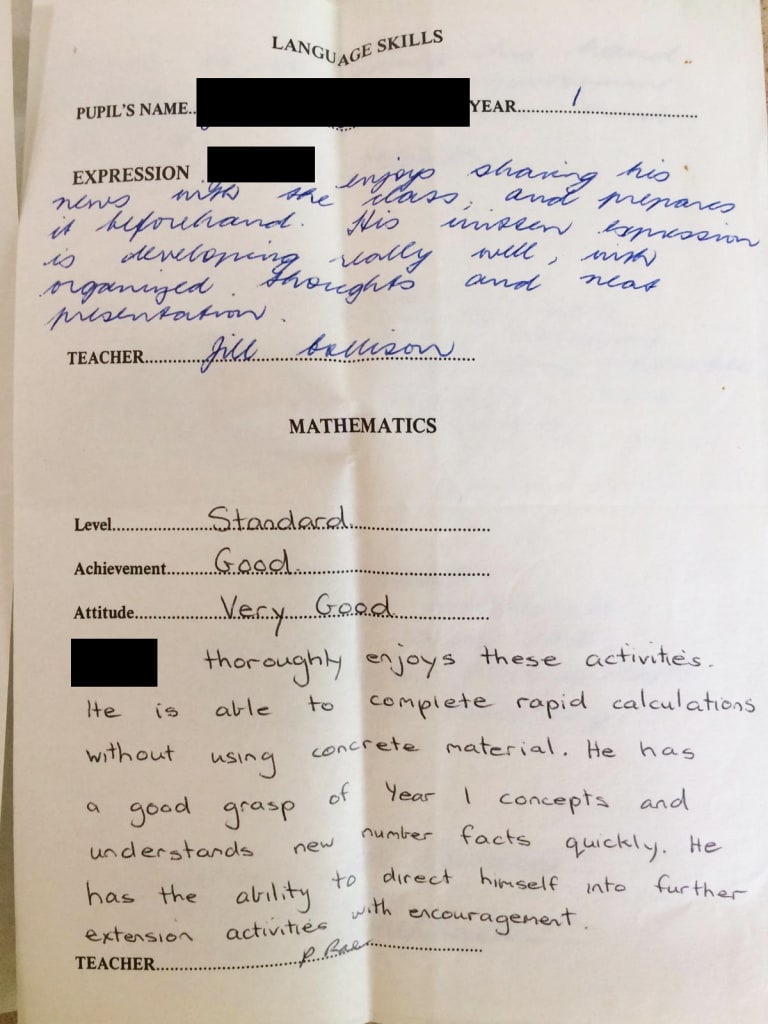 LANGUAGE SKILLS
PUPIL'S NAME.. YEAR 1
EXPRESSION enjoys sharing his
news with the class, and prepares
it beforehand. His written expression
is developing really well, with
organized thoughts and neat
presentation.
TEACHER Jill
MATHEMATICS
Level Standard
Achievement Good
Attitude Very Good
thoroughly enjoys these activities.
He is able to complete rapid calculations
without using concrete material. He has
a good grasp of Year 1 concepts and
understands new number facts quickly. He
has the ability to direct himself into further
extension activities with encouragement.
TEACHER